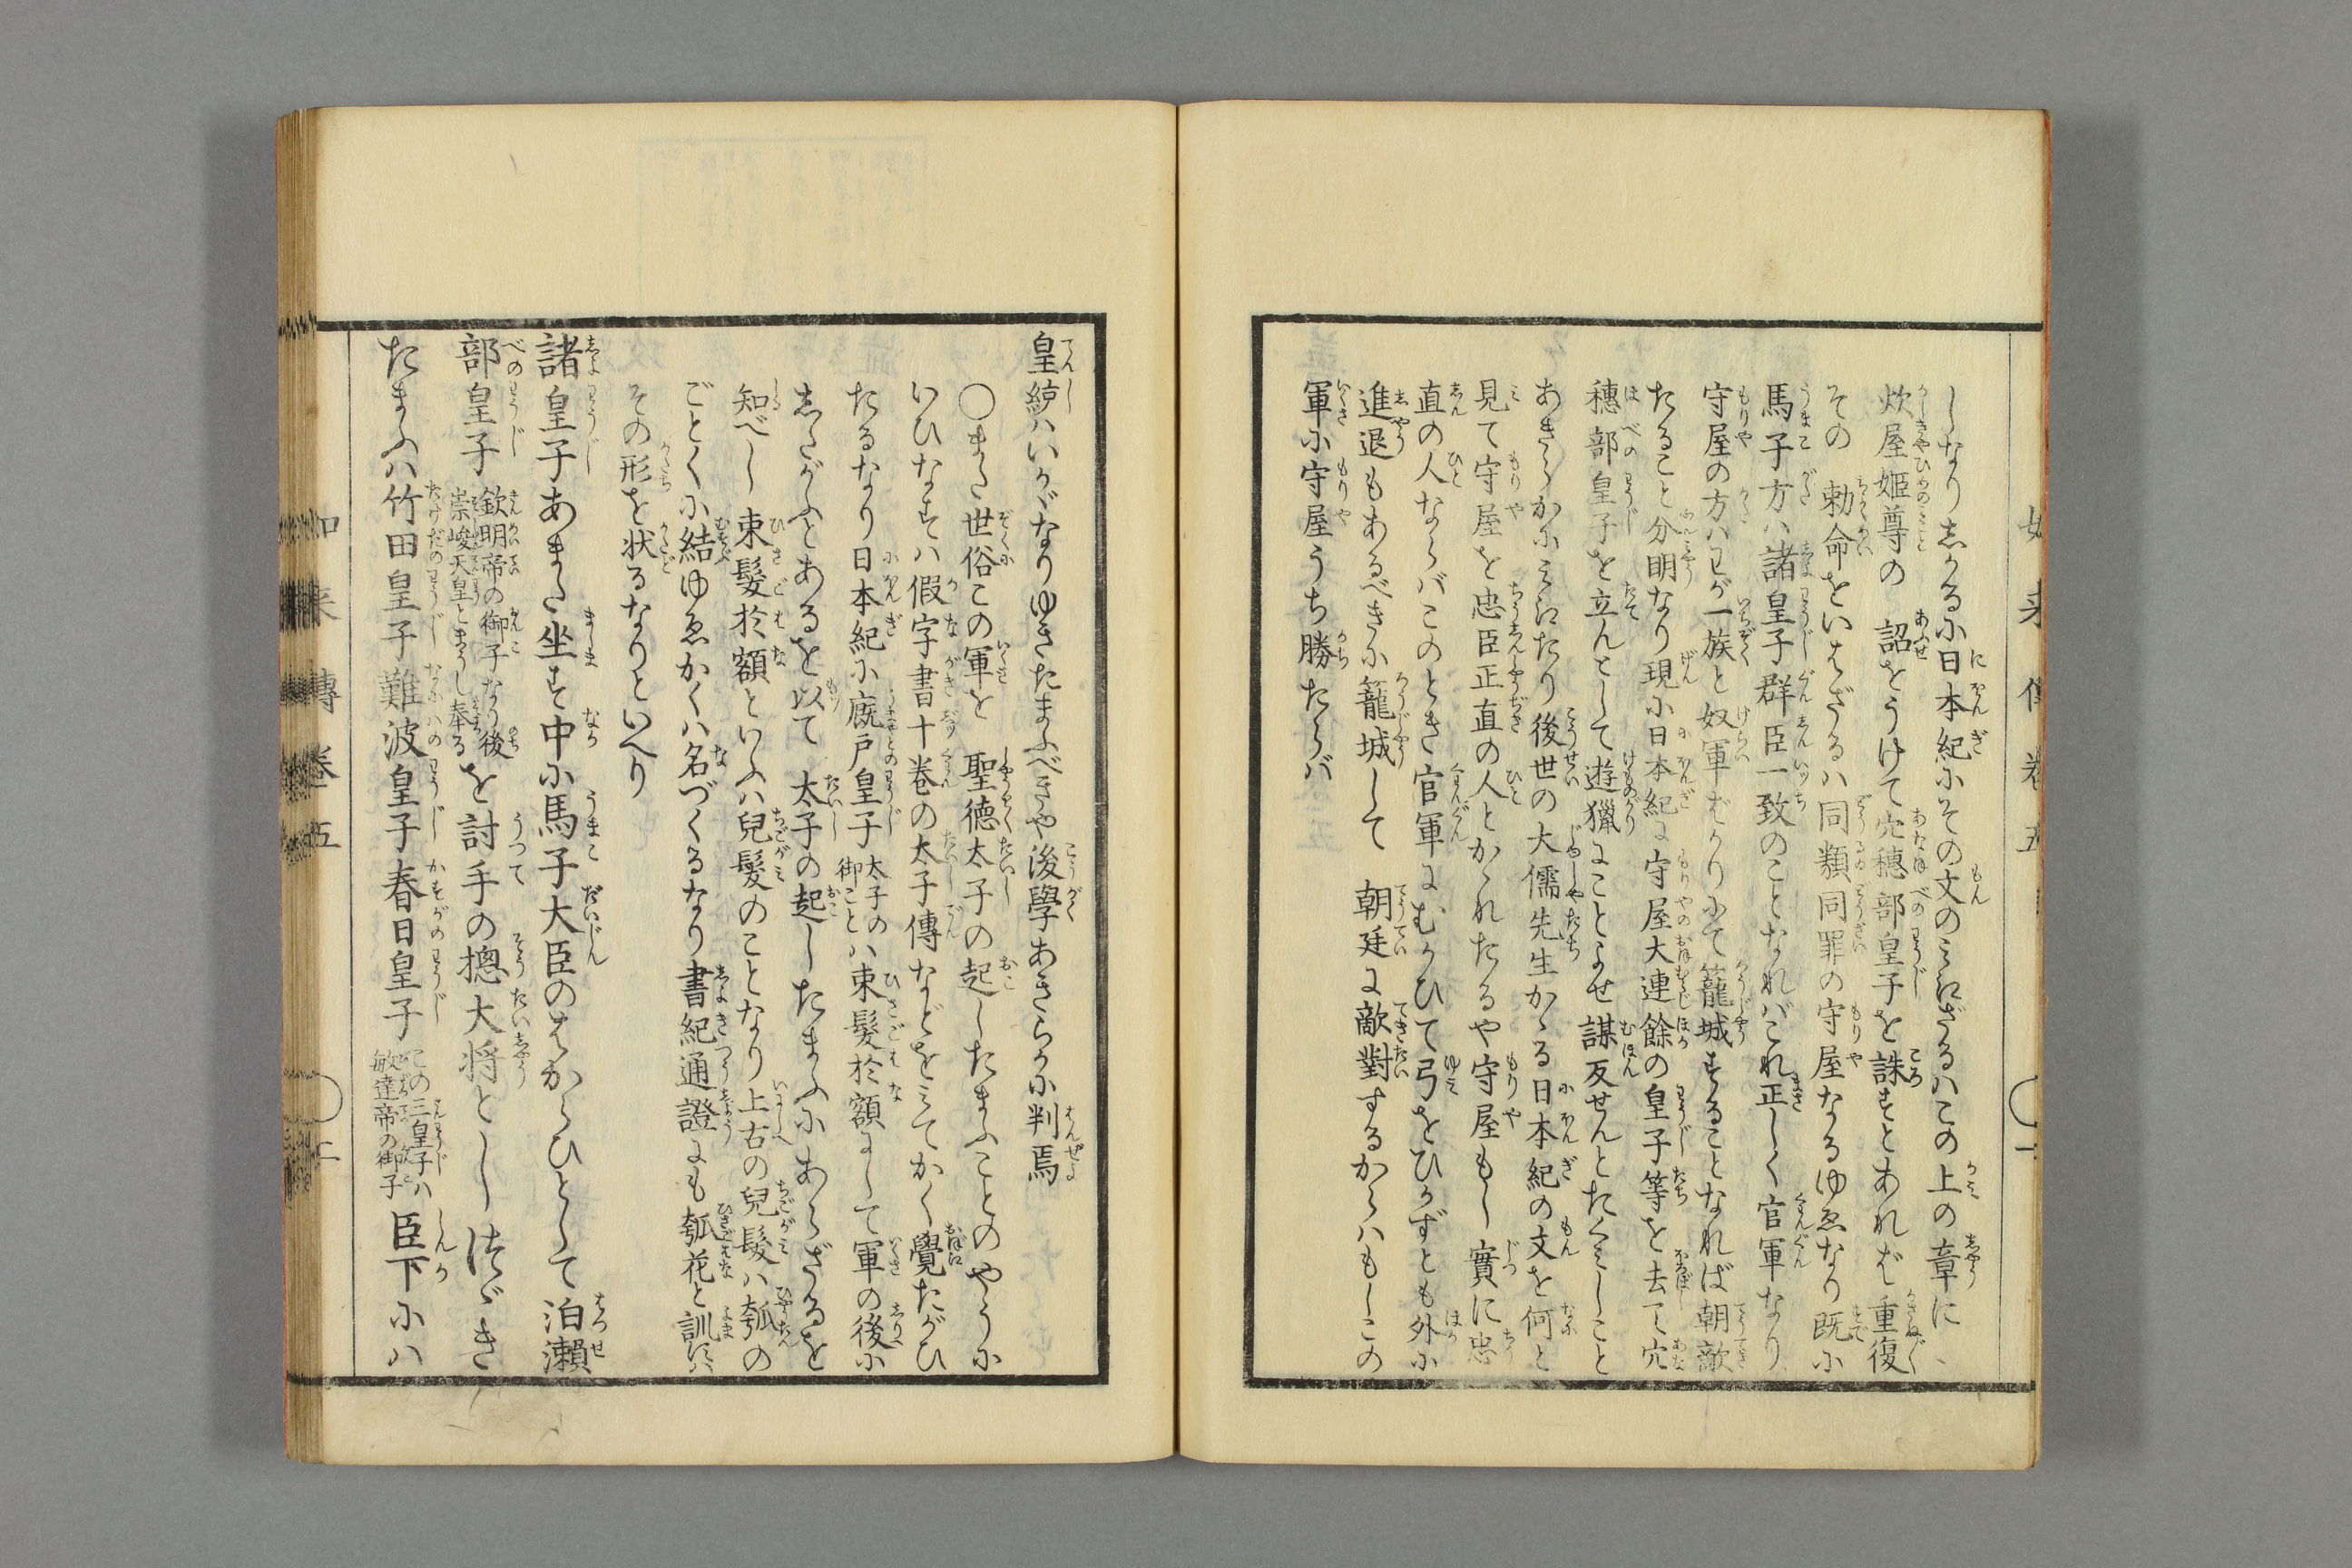 しなりしかる小日本紀小その文のミえざるハこの上の章に
炊屋姫尊の 詔をうけて穴穂部皇子を誅すとあれバ重復
その 勅命をいはざるハ同類同罪の守屋なるゆゑなり既小
馬子方ハ諸皇子群臣一致のことなれバこれ正しく官軍なり
守屋の方ハわが一族と奴軍ばかりにて籠城することなれば朝敵
たること分明なり現小日本紀に守屋大連餘の皇子等を去て穴
穂部皇子を立んとして遊獵にことよせ謀反せんとたくミしこと
あきらか小ミえたり後世の大儒先生かゝる日本紀の文を何と
見て守屋を忠臣正直の人とかゝれたるや守屋もし實に忠
直の人ならバこのとき官軍にむかひて弓をひかずとも外小
進退もあるべき小籠城して 朝廷に敵對するからハもしこの
軍小守屋うち勝たらバ
皇統ハいかゞなりゆきたまふべきや後學あきらか小判焉
○また世俗この軍を 聖徳太子の起したまふことのやう小
いひなすハ假字書十巻の太子傳などをミてかく覺たがひ
たるなり日本紀小廐戸皇子 太子の御こと ハ束髪於額にして軍の後小
したがふとあるを以て 太子の起したまふ小あらざるを
知べし 束髪於額といふハ兒髪のことなり上古の兒髪ハ瓠の
ごとく小結ゆゑかくハ名づくるなり書紀通證にも瓠花と訓ずハ
その形を状るなりといへり
諸皇子あまた坐す中小馬子大臣のはからひとして泊瀬
部皇子 欽明帝の御子なり後 崇峻天皇とまうし奉る を討手の摠大将としつゞき
たまふハ竹田皇子難波皇子春日皇子 この三皇子ハ 敏達帝の御子 臣下小ハ
如来傳巻五